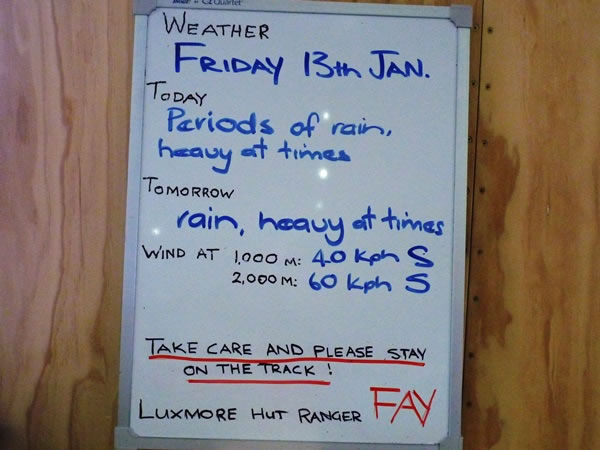 Quartet
WEATHER
FRIDAY 13th JAN.
TODAY
Periods of rain,
heavy at times
TOMORROW
rain, heavy at times
WIND AT 1,000 M: 40 kph S
2,000 M: 60 kph S
TAKE CARE AND PLEASE STAY
ON THE TRACK !
LUXMORE HUT RANGER FAY